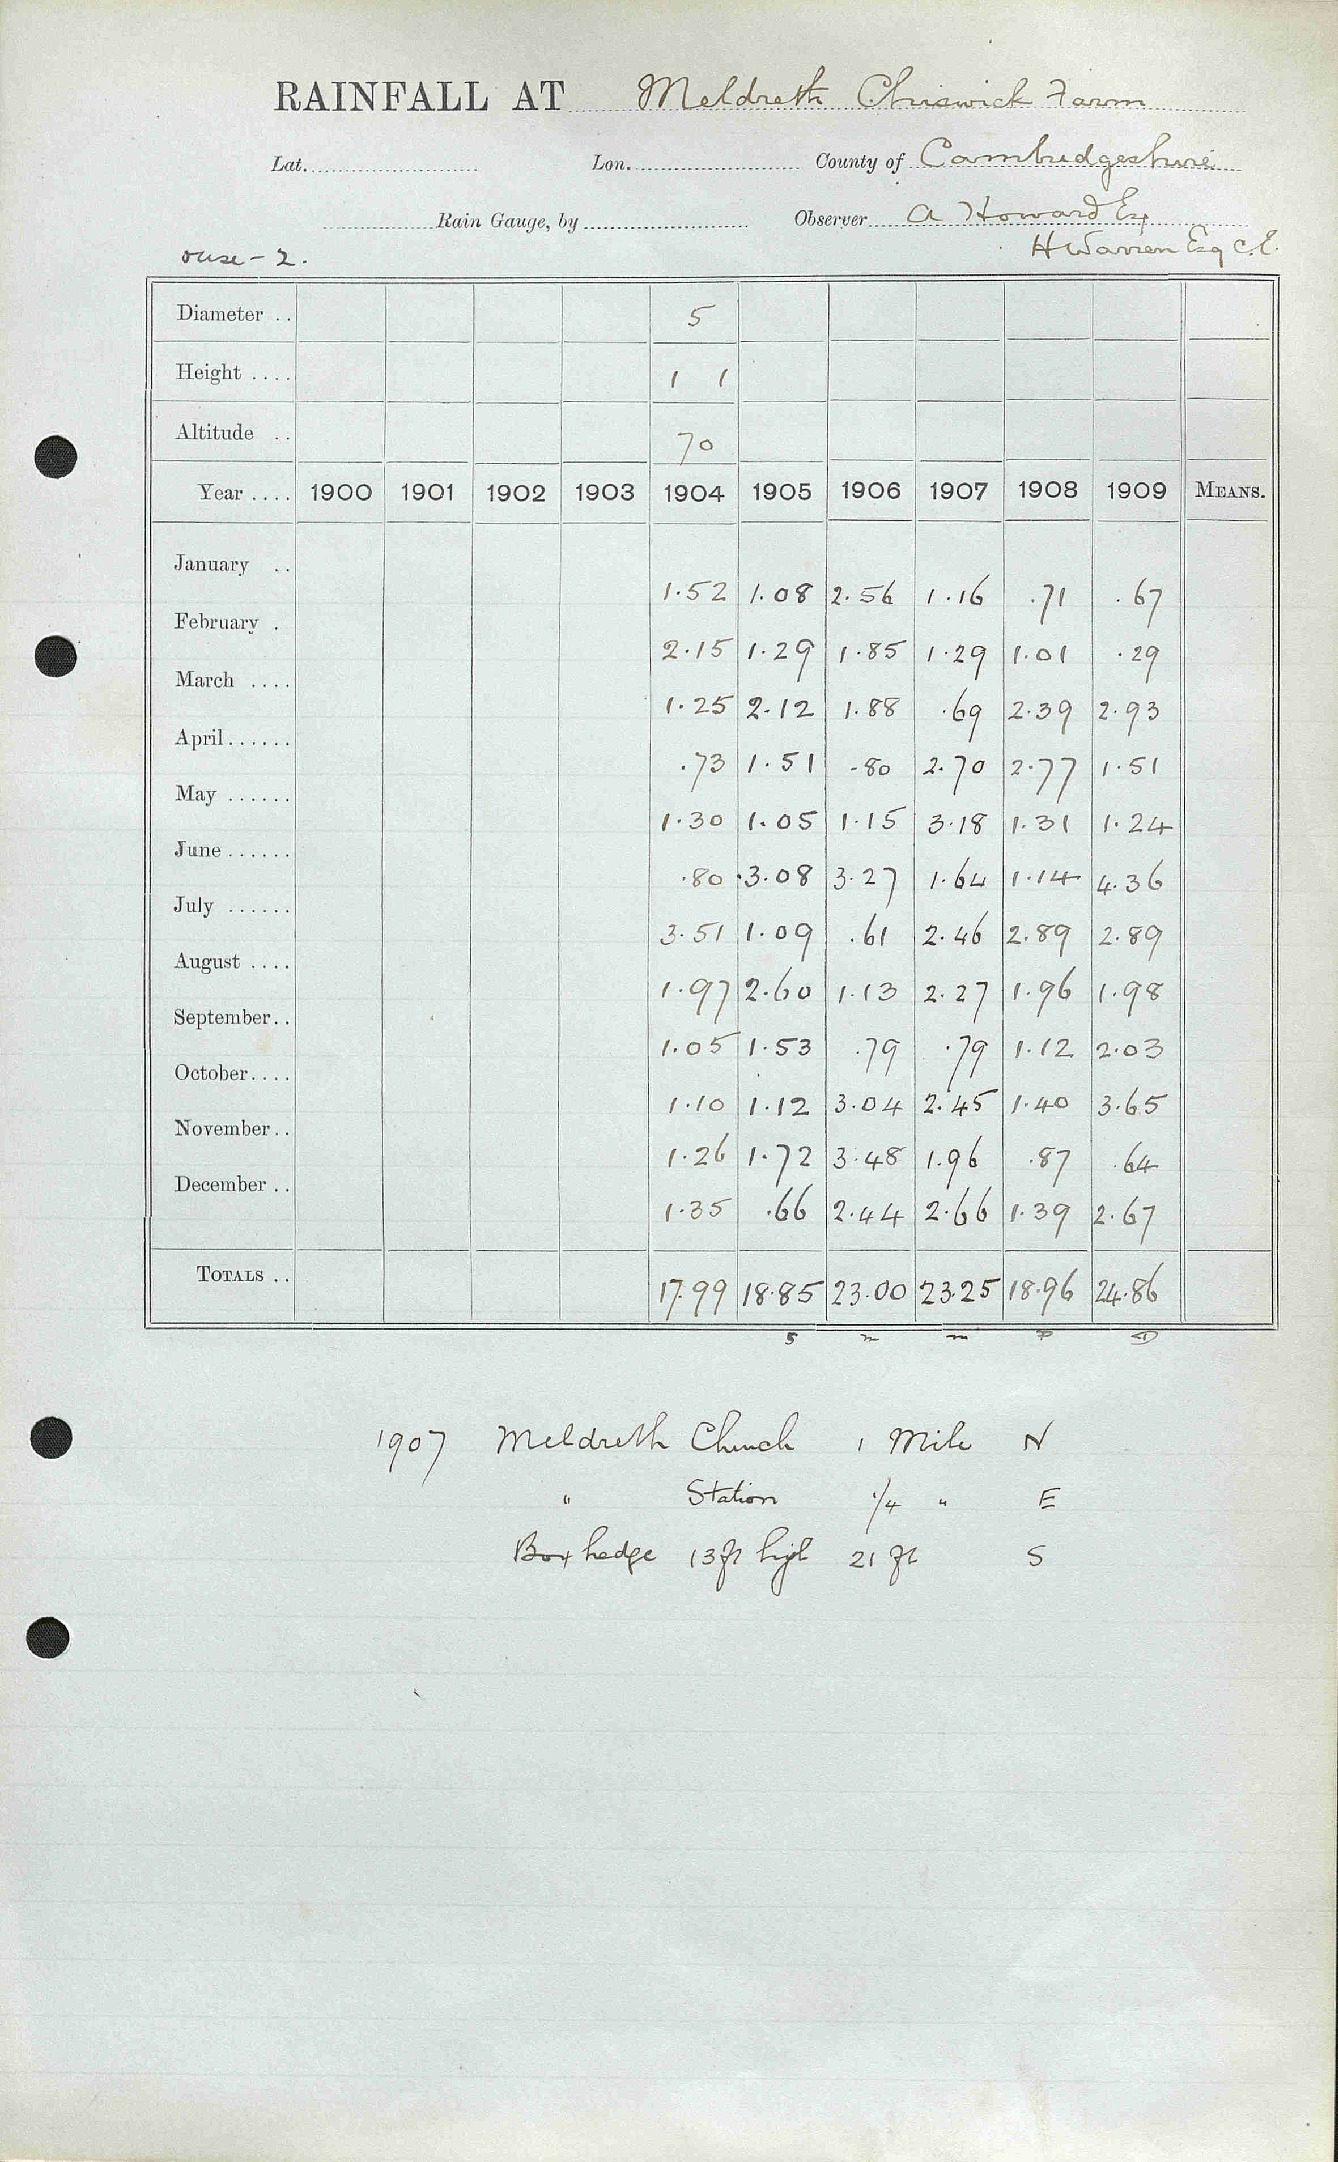 RAINFALL AT Meldreth Chiswick Farm
Lat. Lon. County of Cambridgeshire
Rain Gauge, by Observer A Howard Esq
Ouse - 2. H Warren Esq C.E.
Diameter .. 5
Height .... 1 1
Altitude .. 70
Year .... 1900 1901 1902 1903 1904 1905 1906 1907 1908 1909 MEANS.
January .. 1.52 1.08 2.56 1.16 .71 .67
February . 2.15 1.29 1.85 1.29 1.01 .29
March .... 1.25 2.12 1.88 .69 2.39 2.93
April...... .73 1.51 .80 2.70 2.77 1.51
May ...... 1.30 1.05 1.15 3.18 1.31 1.24
June ...... .80 3.08 3.27 1.64 1.14 4.36
July ...... 3.51 1.09 .61 2.46 2.89 2.89
August .... 1.97 2.60 1.13 2.27 1.96 1.98
September.. 1.05 1.53 .79 .79 1.12 2.03
October.... 1.10 1.12 3.04 2.45 1.40 3.65
November.. 1.26 1.72 3.48 1.96 .87 .64
December .. 1.35 .66 2.44 2.66 1.39 2.67
TOTALS .. 17.99 18.85 23.00 23.25 18.96 24.86
S m m P D
1907 Meldreth Church 1 Mile N
" Station 1/4 " E
Box hedge 13ft high 21 ft S